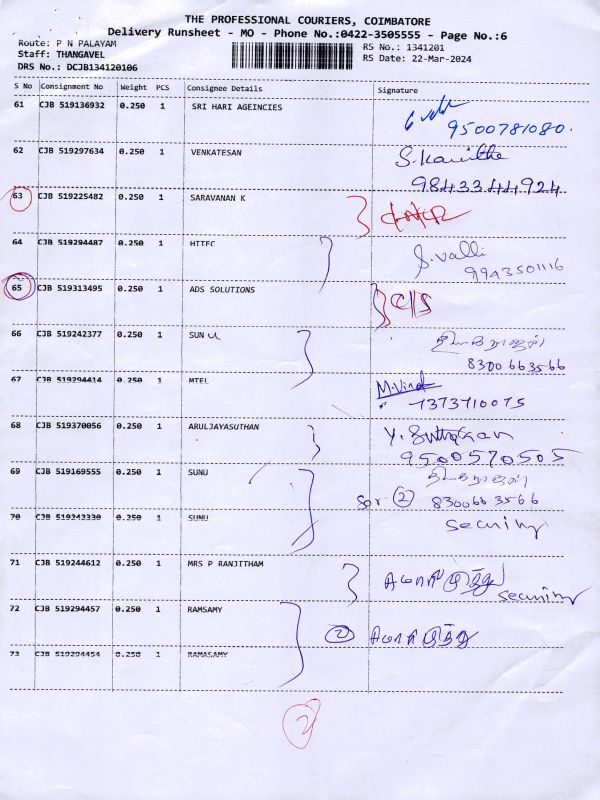 THE PROFESSIONAL COURIERS, COIMBATORE
Delivery Runsheet - MO - Phone No.:0422-3505555 - Page No.:6
Route: P N PALAYAM
Staff: THANGAVEL
DRS No.: DCJB134120106
RS No.: 1341201
RS Date: 22-Mar-2024
S No Consignment No Weight PCS Consignee Details Signature
61 CJB 519136932 0.250 1 SRI HARI AGEINCIES
9500781080.
62 CJB 519297634 0.250 1 VENKATESAN S. Kavitha
9843344924
63 CJB 519225482 0.250 1 SARAVANAN K
64 CJB 519294487 0.250 1 HTTFC S. Valli
9943501116
65 CJB 519313495 0.250 1 ADS SOLUTIONS C/S
66 CJB 519242377 0.250 1 SUN U
8300663566
67 CJB 519294414 0.250 1 MTEL M. Vinoth
7373710075
68 CJB 519370056 0.250 1 ARULJAYASUTHAN
9500570505
69 CJB 519169555 0.250 1 SUNU
2 8300663566
70 CJB 519242330 0.250 1 SUNU Security
71 CJB 519244612 0.250 1 MRS P RANJITHAM
Security
72 CJB 519294457 0.250 1 RAMSAMY
2
73 CJB 519294454 0.250 1 RAMASAMY
2